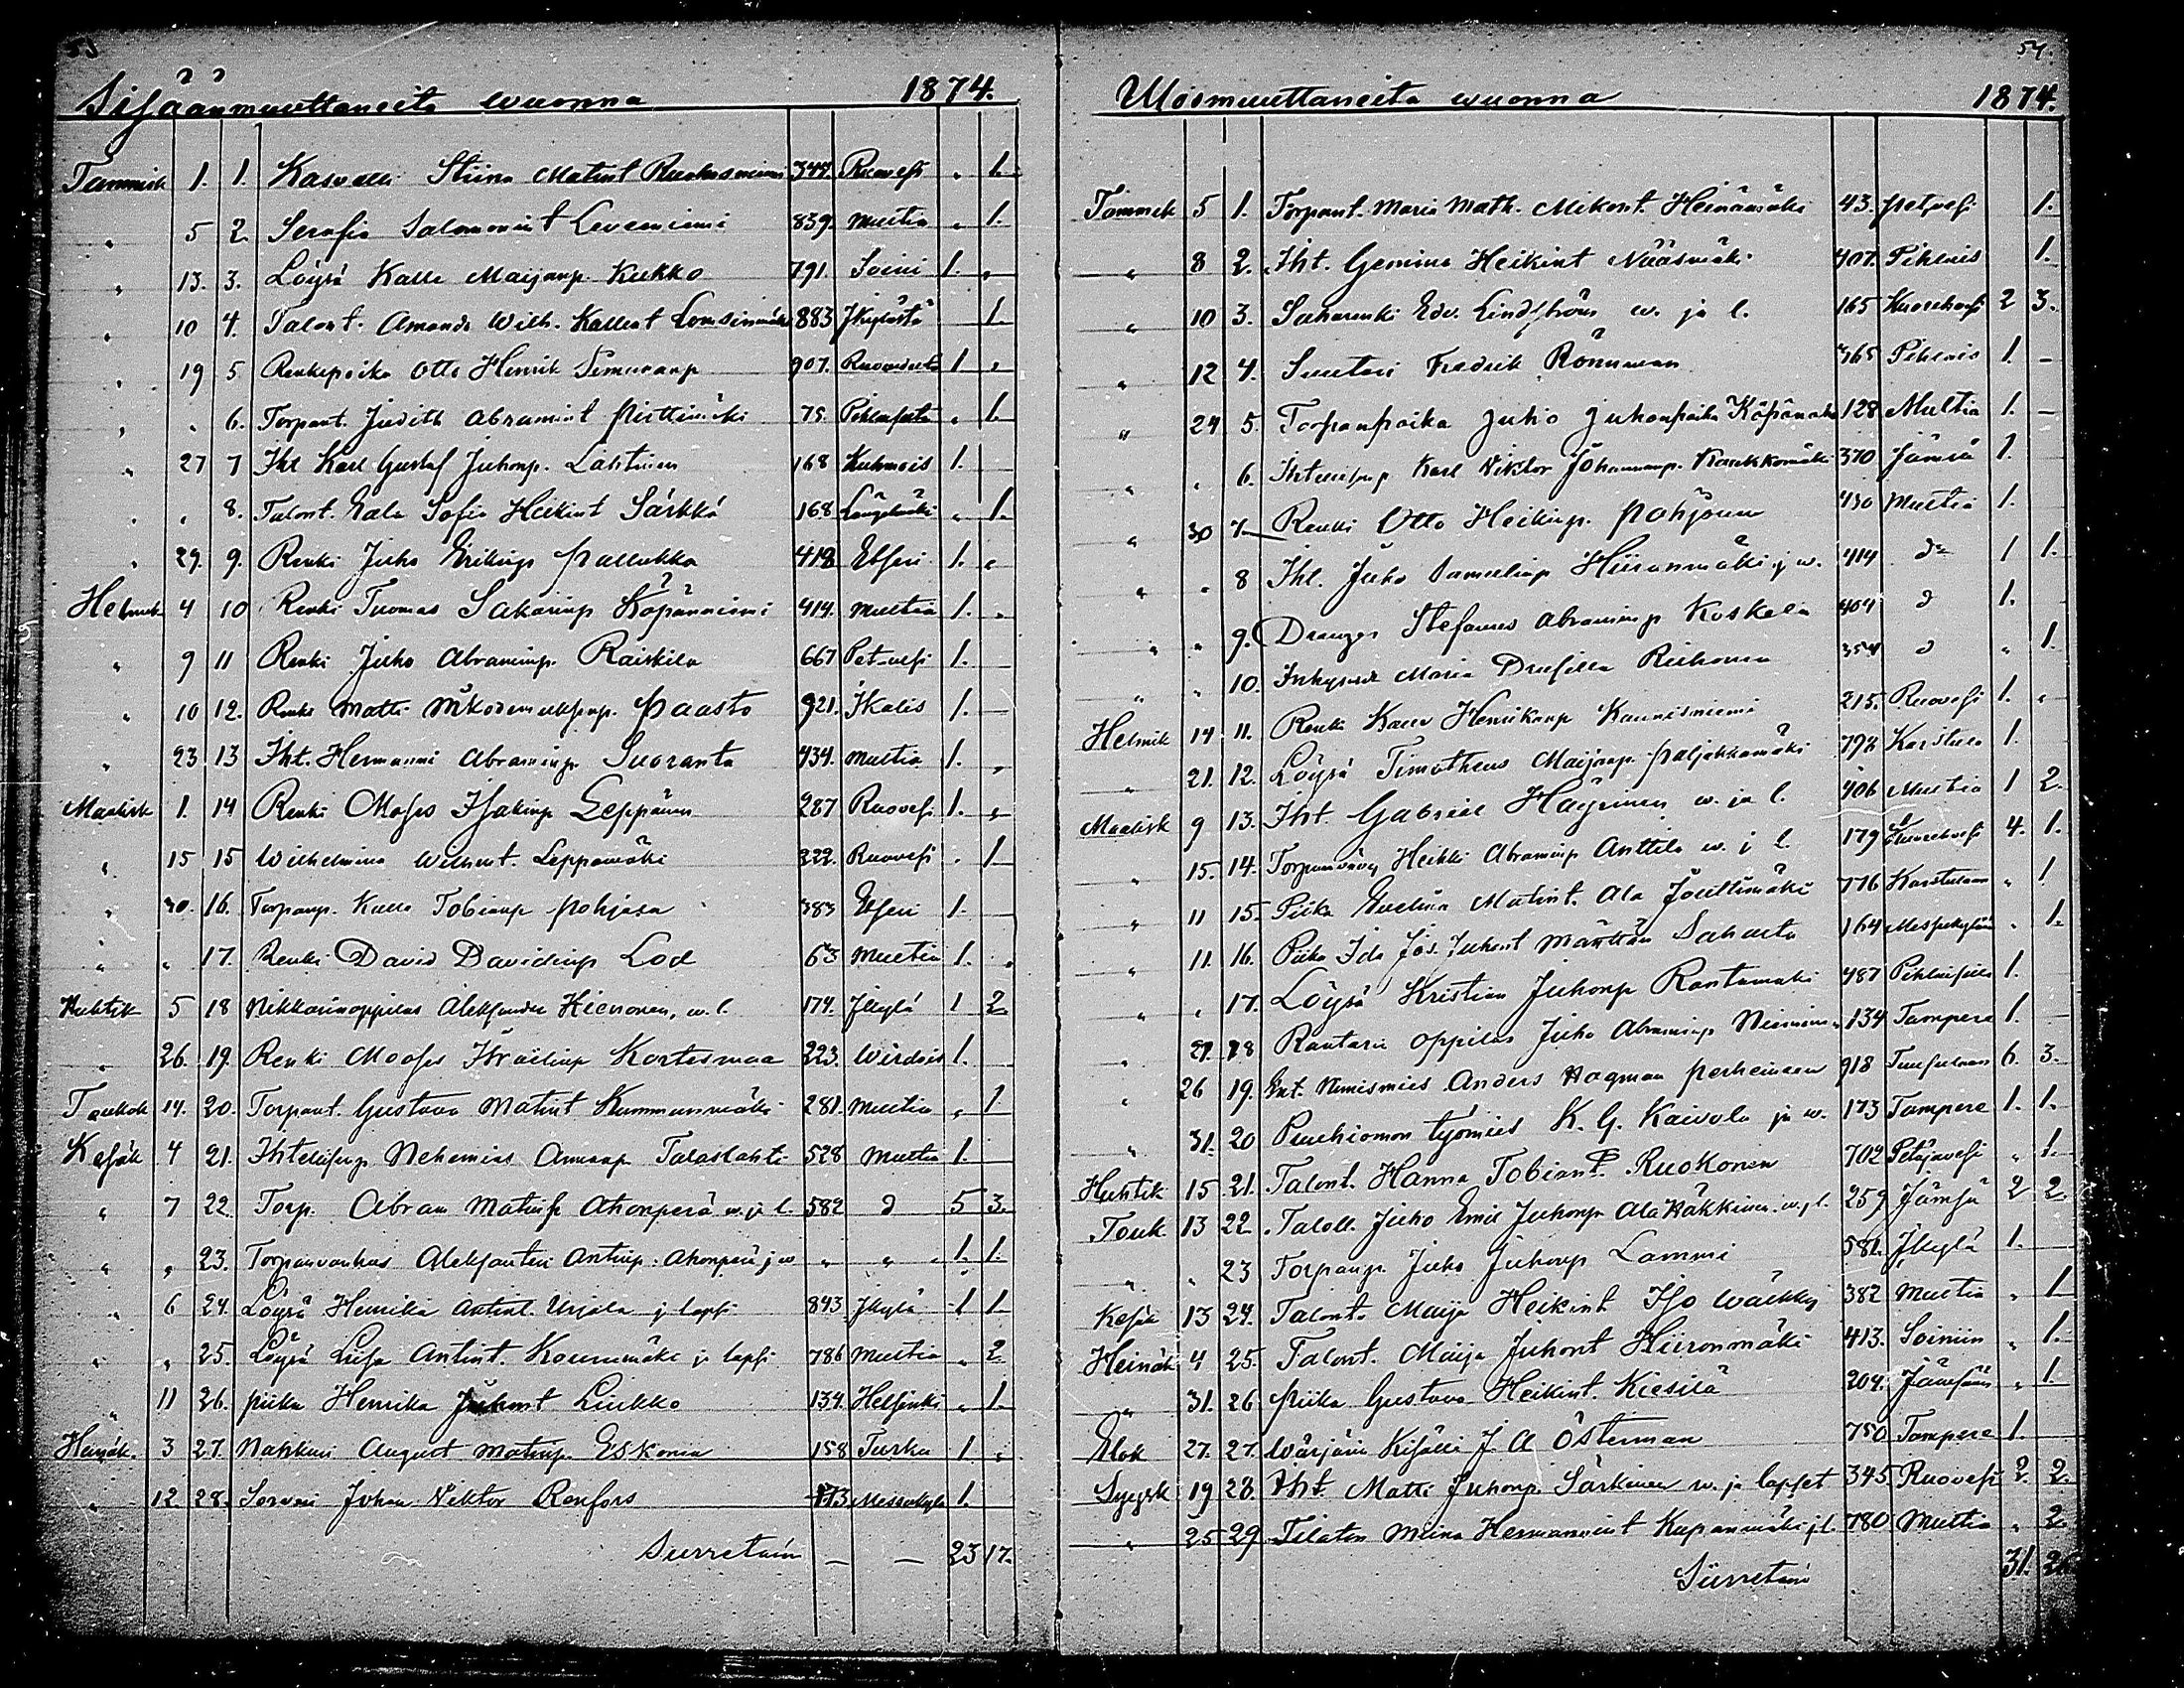 53
Sisäänmuuttaneita wuonna 1874.
Tammik 1. 1. Kasvatti Stiina Matint 344. Ruovesi " 1.
" 5 2. Serafia Salomonint Leveeniemi 839. Multia " 1.
" 13. 3. Löysä Kalle Maijanp. Kukko 791. Soini 1. "
" 10 4. Talont. Amanda Wilh. Kallent 883 Jkylästä 1.
" 19 5. Renkipoika Otto Henrik Simunanp 907. 1 "
" " 6. Torpant. Judith Abramint Pirttimäki 75. " 1.
" 27 7 Iht Karl Gustaf Juhonp. Lahtinen 168 Kuhmois 1.
" " 8. Talont. Eala Sofia Heikint Särkkä 168 Längelmäki " 1.
" 29. 9. Renki Juho Erikinp Pallukka 418 Etseri 1. "
Helmik 4 10 Renki Tuomas SakarinpKöpänniemi 414. Multia 1. "
" 9 11 Renki Juho Abraminp. Raiskila 667 Petävesi 1.
" 10 12. Renki Matti Paasto 921. Ikalis 1.
" 23 13 Iht. Hermanni Abraminp Suoranta 434. Multia 1. "
Maalisk 1. 14 Renki Moses Isakinp Leppänen 287 Ruovesi 1. "
" 15 15 Wilhelmina Willent. Leppämäki 222. Ruovesi " 1
" 30. 16. Torpanp. Kalle Tobianp Pohjasa 383 Etseri 1.
" " 17. Renki David Davidinp Lod 63 Multia 1. "
Huhtik 5 18 Nikkarinoppilas Aleksander Hienonen, w. l. 174. Jkylä 1 2.
" 26. 19. Renki Mooses Israelinp Kortesmaa 223. Wirdois 1.
Toukok 14. 20. Torpant. Gustava Matint Kummunmäki 281. Multia " 1
Kesäk 4 21. Nehemias Annanp Talaslahti 528 Multia 1.
" 7 22 Torp. Abram Matinp Ahonperä w. ja l. 582 d 5 3.
" " 23. Torpanvanhus Aleksanteri Antinp. Ahonperä j w " " 1. 1.
" 6 24. Löysä Henrika Antint. Urjala j lapsi 843 Jkylä 1 1.
" " 25. Löysä Liisa Antint. Kourumäki ja lapsi 786 Multia " 2.
" 11 26. Piika Henrika Juhont Liukko 134. Helsinki " 1.
Heinäk. 3 27. Nahkuri August Matinp. Eskonen 158 Turku 1 "
" 12 28. Sorvari Johan Viktor Renfors 173 Messukylä 1.
Siirretään — — 23 17.
54.
Uloosmuuttaneita wuonna 1874.
Tammik 5 1. Torpant. Maria Math. Mikont. Heinämäki 43. Petävesi 1.
" 8 2. Iht. Gemina Heikint Nääsmäki 407. Pihlais 1.
" 10 3. Suharenki Edv. Lindström w. ja l. 165 Kuorehvesi 2 3.
" 12 4. Suutari Fredrik Rönnman 365 Pihlais 1. —
" 24 5. Torpanpoika Juho Juhonpoika 128 Multia 1. —
" " 6. Karl Viktor Johannanp. Kaukkomäki 370 Jämsä 1.
" 30 7 Renki Otto Heikinp. Pohjonen 430 Multia 1.
" " 8 Iht. Juho Samulinp Hiironmäki j w. 414 do 1 1.
" " 9. Drenger Stefanus Abraminp Koskela 404 d 1.
" " 10. Maria Drusilla Riihonen 354 d " 1.
Helmik 14 11. Renki Kalle Henrikanp Kaunisniemi 215. Ruovesi 1. "
" 21. 12. Löysä Timotheus Maijanp. Paljakkamäki 792 Karstula 1.
Maalisk 9 13. Iht. Gabriel Häyrinen w. ja l. 406 Multia 1 2.
" 15. 14. Torpanvävy Heikki Abraminp Anttila w. j l. 179 4. 1.
" 11 15. Piika Evelina Matint. Ala Joulttimäki 776 Karstulaan " 1
" 11. 16. Piika Ida Jos. Juhont Märttän Sahasta 164 Messukylään " 1.
" " 17. Löysä Kristian Juhonp Rantamäki 487 1.
" 27. 18 Rautarin oppilas Juho Abraminp Nieminen 134 Tampere 1.
" 26 19. Ent. Nimismies Anders Hagman perheineen 918 6. 3.
" 31. 20 työmies K. G. Kaivola ja w. 173 Tampere 1. 1.
Huhtik 15. 21. Talont. Hanna Tobiant. Ruokonen 702 Petäjävesi " 1.
Touk 13 22. Taloll. Juho Emil Juhonp Ala Häkkinen w. j l. 259 Jämsä 2 2.
" " 23 Torpanp. Juho Juhonp Lammi 581. Jkylä 1.
Kesäk 13 24. Talont. Maija Heikint Iso Wälkky 382 Multia " 1
Heinäk 4 25. Talont. Maija Juhont Hiironmäki 413. Soiniin " 1.
" 31. 26 Piika Gustava Heikint. Kiesilä 204. Jämsään " 1.
Elok 27. 27. Wärjärin Kisälli J A Österman 750 Tampere 1.
Syysk 19 28. Iht. Matti Juhonp. Särkinen w. ja lapset 345 Ruovesi 2. 2.
" 25 29. Miina Hermannint Kupanmäki j l. 780 Multia " 2.
Siirretään 31. 2